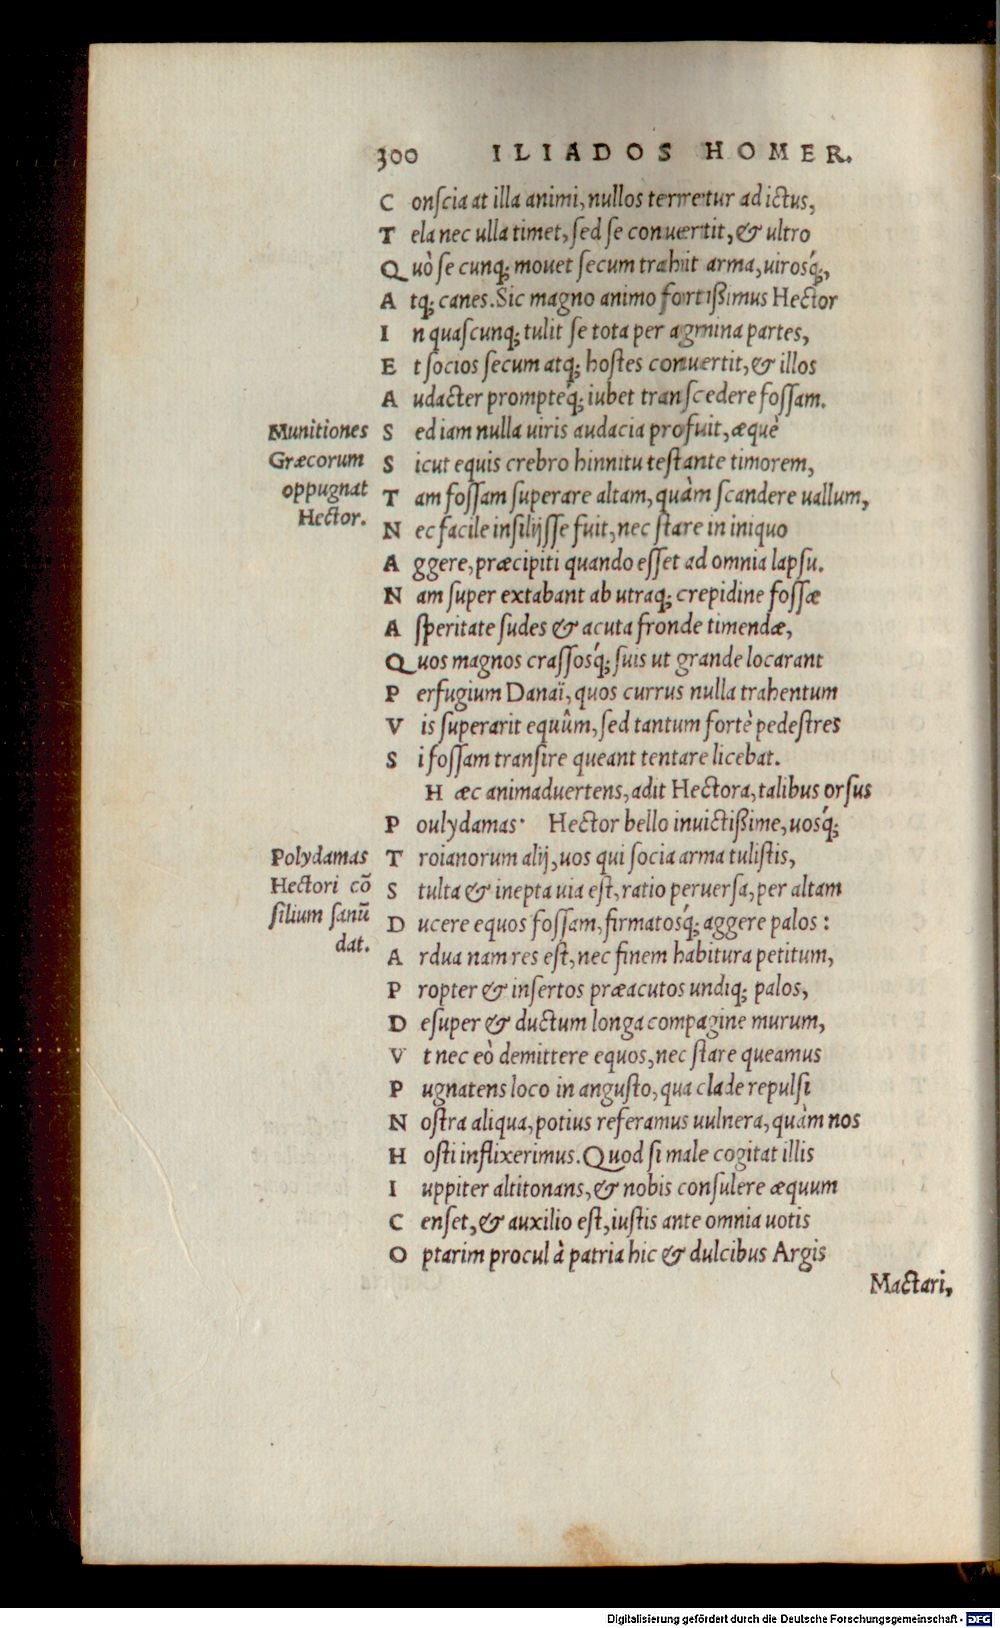 300 ILIADOS HOMER.
Conſcia at illa animi, nullos terretur ad ictus,
Tela nec ulla timet, ſed ſe conuertit, & ultro
Quò ſe cunq; mouet ſecum trahit arma, uirosq́;,
Atq; canes. Sic magno animo fortißimus Hector
In quaſcunq; tulit ſe tota per agmina partes,
Et ſocios ſecum atq; hoſtes conuertit, & illos
Audacter prompteq́; iubet tranſcedere foſſam.
Munitiones Græcorum oppugnat Hector.
Sed iam nulla uiris audacia profuit, æquè
Sicut equis crebro hinnitu teſtante timorem,
Tam foſſam ſuperare altam, quàm ſcandere uallum,
Nec facile inſilijſſe fuit, nec ſtare in iniquo
Aggere, præcipiti quando eſſet ad omnia lapſu.
Nam ſuper extabant ab utraq; crepidine foſſæ
Aſperitate ſudes & acuta fronde timendæ,
Quos magnos craſſosq́; ſuis ut grande locarant
Perfugium Danaï, quos currus nulla trahentum
Vis ſuperarit equûm, ſed tantum fortè pedeſtres
Si foſſam tranſire queant tentare licebat.
Hæc animaduertens, adit Hectora, talibus orſus
Poulydamas· Hector bello inuictißime, uosq́;
Polydamas Hectori cõ
ſilium ſanũ
dat.
Troianorum alij, uos qui ſocia arma tuliſtis,
Stulta & inepta uia eſt, ratio peruerſa, per altam
Ducere equos foſſam, firmatosq́; aggere palos:
Ardua nam res eſt, nec finem habitura petitum,
Propter & inſertos præacutos undiq; palos,
Deſuper & ductum longa compagine murum,
Vt nec eò demittere equos, nec ſtare queamus
Pugnatens loco in anguſto, qua clade repulſi
Noſtra aliqua, potius referamus uulnera, quàm nos
Hoſti inflixerimus. Quod ſi male cogitat illis
Iuppiter altitonans, & nobis conſulere æquum
Cenſet, & auxilio eſt, iuſtis ante omnia uotis
Optarim procul à patria hic & dulcibus Argis
Mactari,
Digitalisierung gefördert durch die Deutsche Forschungsgemeinschaft - DFG